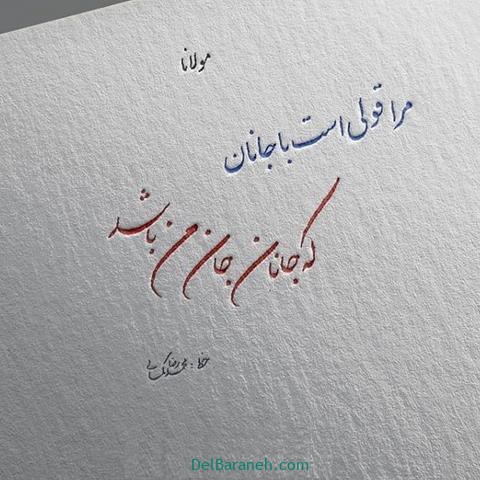 مولانا
مرا قولی است با جانان
که جانان جان من باشد
خط : محمدرضا
DelBaraneh.com